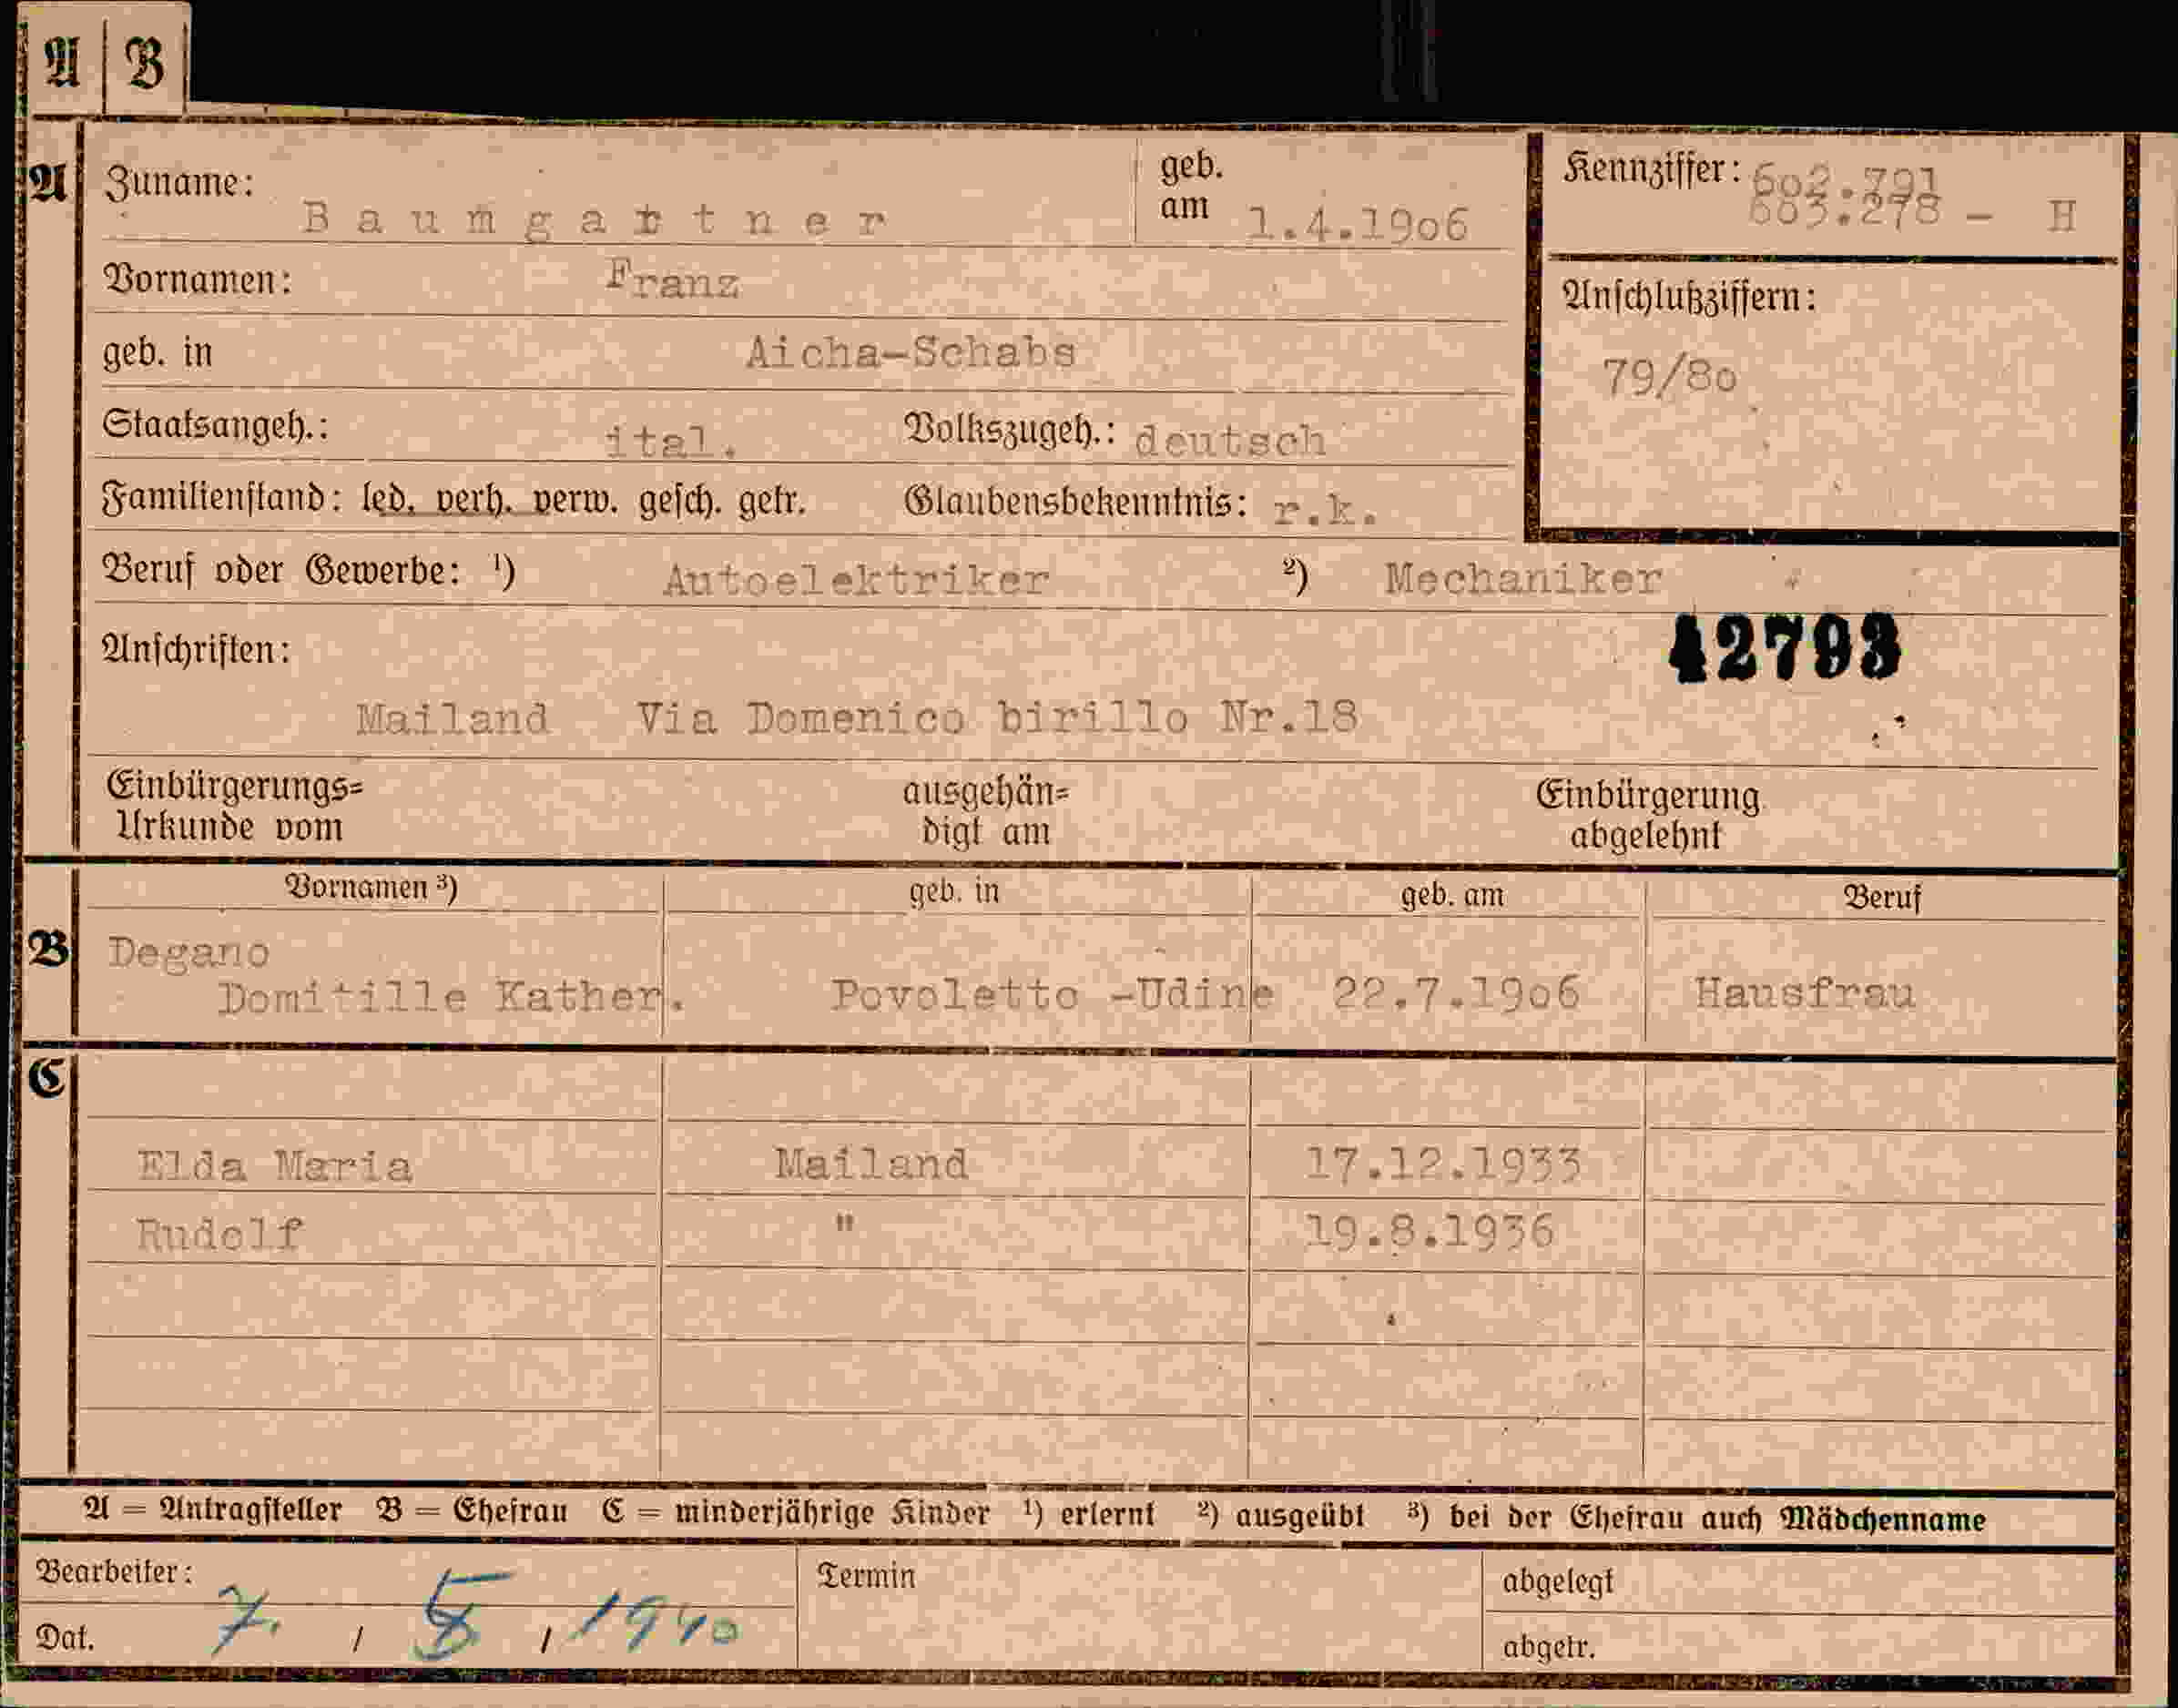 A B
A Zuname: Baumgartner geb. am 1.4.1906 Kennziffer: 602.791
603.278 - H
Vornamen: Franz
Anschlußziffern:
geb. in Aicha-Schabs
79/80
Staatsangeh.: ital. Volkszugeh.: deutsch
Familienstand: led. verh. verw. gesch. getr. Glaubensbekenntnis: r.k.
Beruf oder Gewerbe: ¹) Autoelektriker ²) Mechaniker
Anschriften: 42793
Mailand Via Domenico birillo Nr.18
Einbürgerungs= ausgehän= Einbürgerung
Urkunde vom digt am abgelehnt
Vornamen ³) geb. in geb. am Beruf
B Degano
Domitille Kather. Povoletto -Udine 22.7.1906 Hausfrau
C
Elda Maria Mailand 17.12.1933
Rudolf " 19.8.1936
A = Antragsteller B = Ehefrau C = minderjährige Kinder ¹) erlernt ²) ausgeübt ³) bei der Ehefrau auch Mädchenname
Bearbeiter: Termin abgelegt
Dat. 7. / 5 / 1940 abgetr.